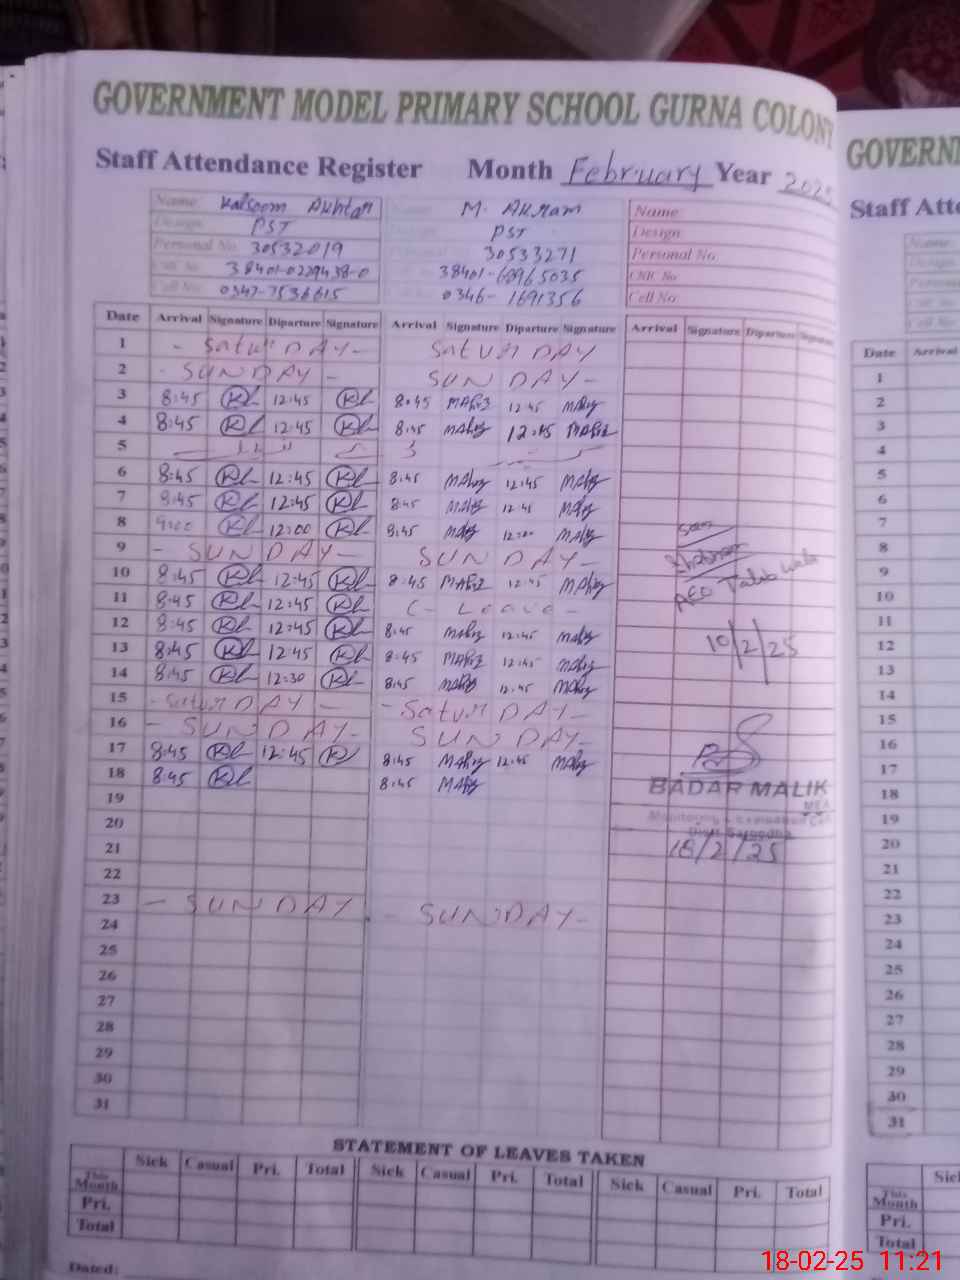 GOVERNMENT MODEL PRIMARY SCHOOL GURNA COLONY
Staff Attendance Register Month February Year 2025
Name Kalsoom Akhtar Name M. Akram Name
Design PST PST Design
Personal No. 30532019 30533271 Personal No
38401-0229438-0 38401-68965035 CNIC No
Cell No 0347-7536615 0346-1691356 Cell No
Date Arrival Signature Diparture Signature Arrival Signature Diparture Signature Arrival Signature Diparture Signature
1 - Satur DAY - Satur DAY
2 - SUNDAY - SUN DAY -
3 8:45 12:45 8:45 12:45
4 8:45 12:45 8:45 12:45
5
6 8:45 12:45 8:45 12:45
7 8:45 12:45 8:45 12:45
8 9:00 12:00 8:45 12:00
9 - SUNDAY - SUNDAY -
10 8:45 12:45 8:45 12:45
11 8:45 12:45 C - Leave -
12 8:45 12:45 8:45 12:45
13 8:45 12:45 8:45 12:45
14 8:45 12:30 8:45 12:45
15 - Satur DAY - - Satur DAY -
16 - SUNDAY - SUNDAY -
17 8:45 12:45 8:45 12:45
18 8:45 8:45
19
20
21
22
23 - SUNDAY - SUNDAY -
24
25
26
27
28
29
30
31
AEO
10/2/25
BADAR MALIK
MEA
Monitoring & Evaluation Cell
Distt Sargodha
18/2/25
STATEMENT OF LEAVES TAKEN
Sick Casual Pri. Total Sick Casual Pri. Total Sick Casual Pri. Total
This Month
Pri.
Total
Dated:
GOVERN
Staff Atte
Date Arrival
1
2
3
4
5
6
7
8
9
10
11
12
13
14
15
16
17
18
19
20
21
22
23
24
25
26
27
28
29
30
31
Sick
This Month
Pri.
Total
18-02-25 11:21